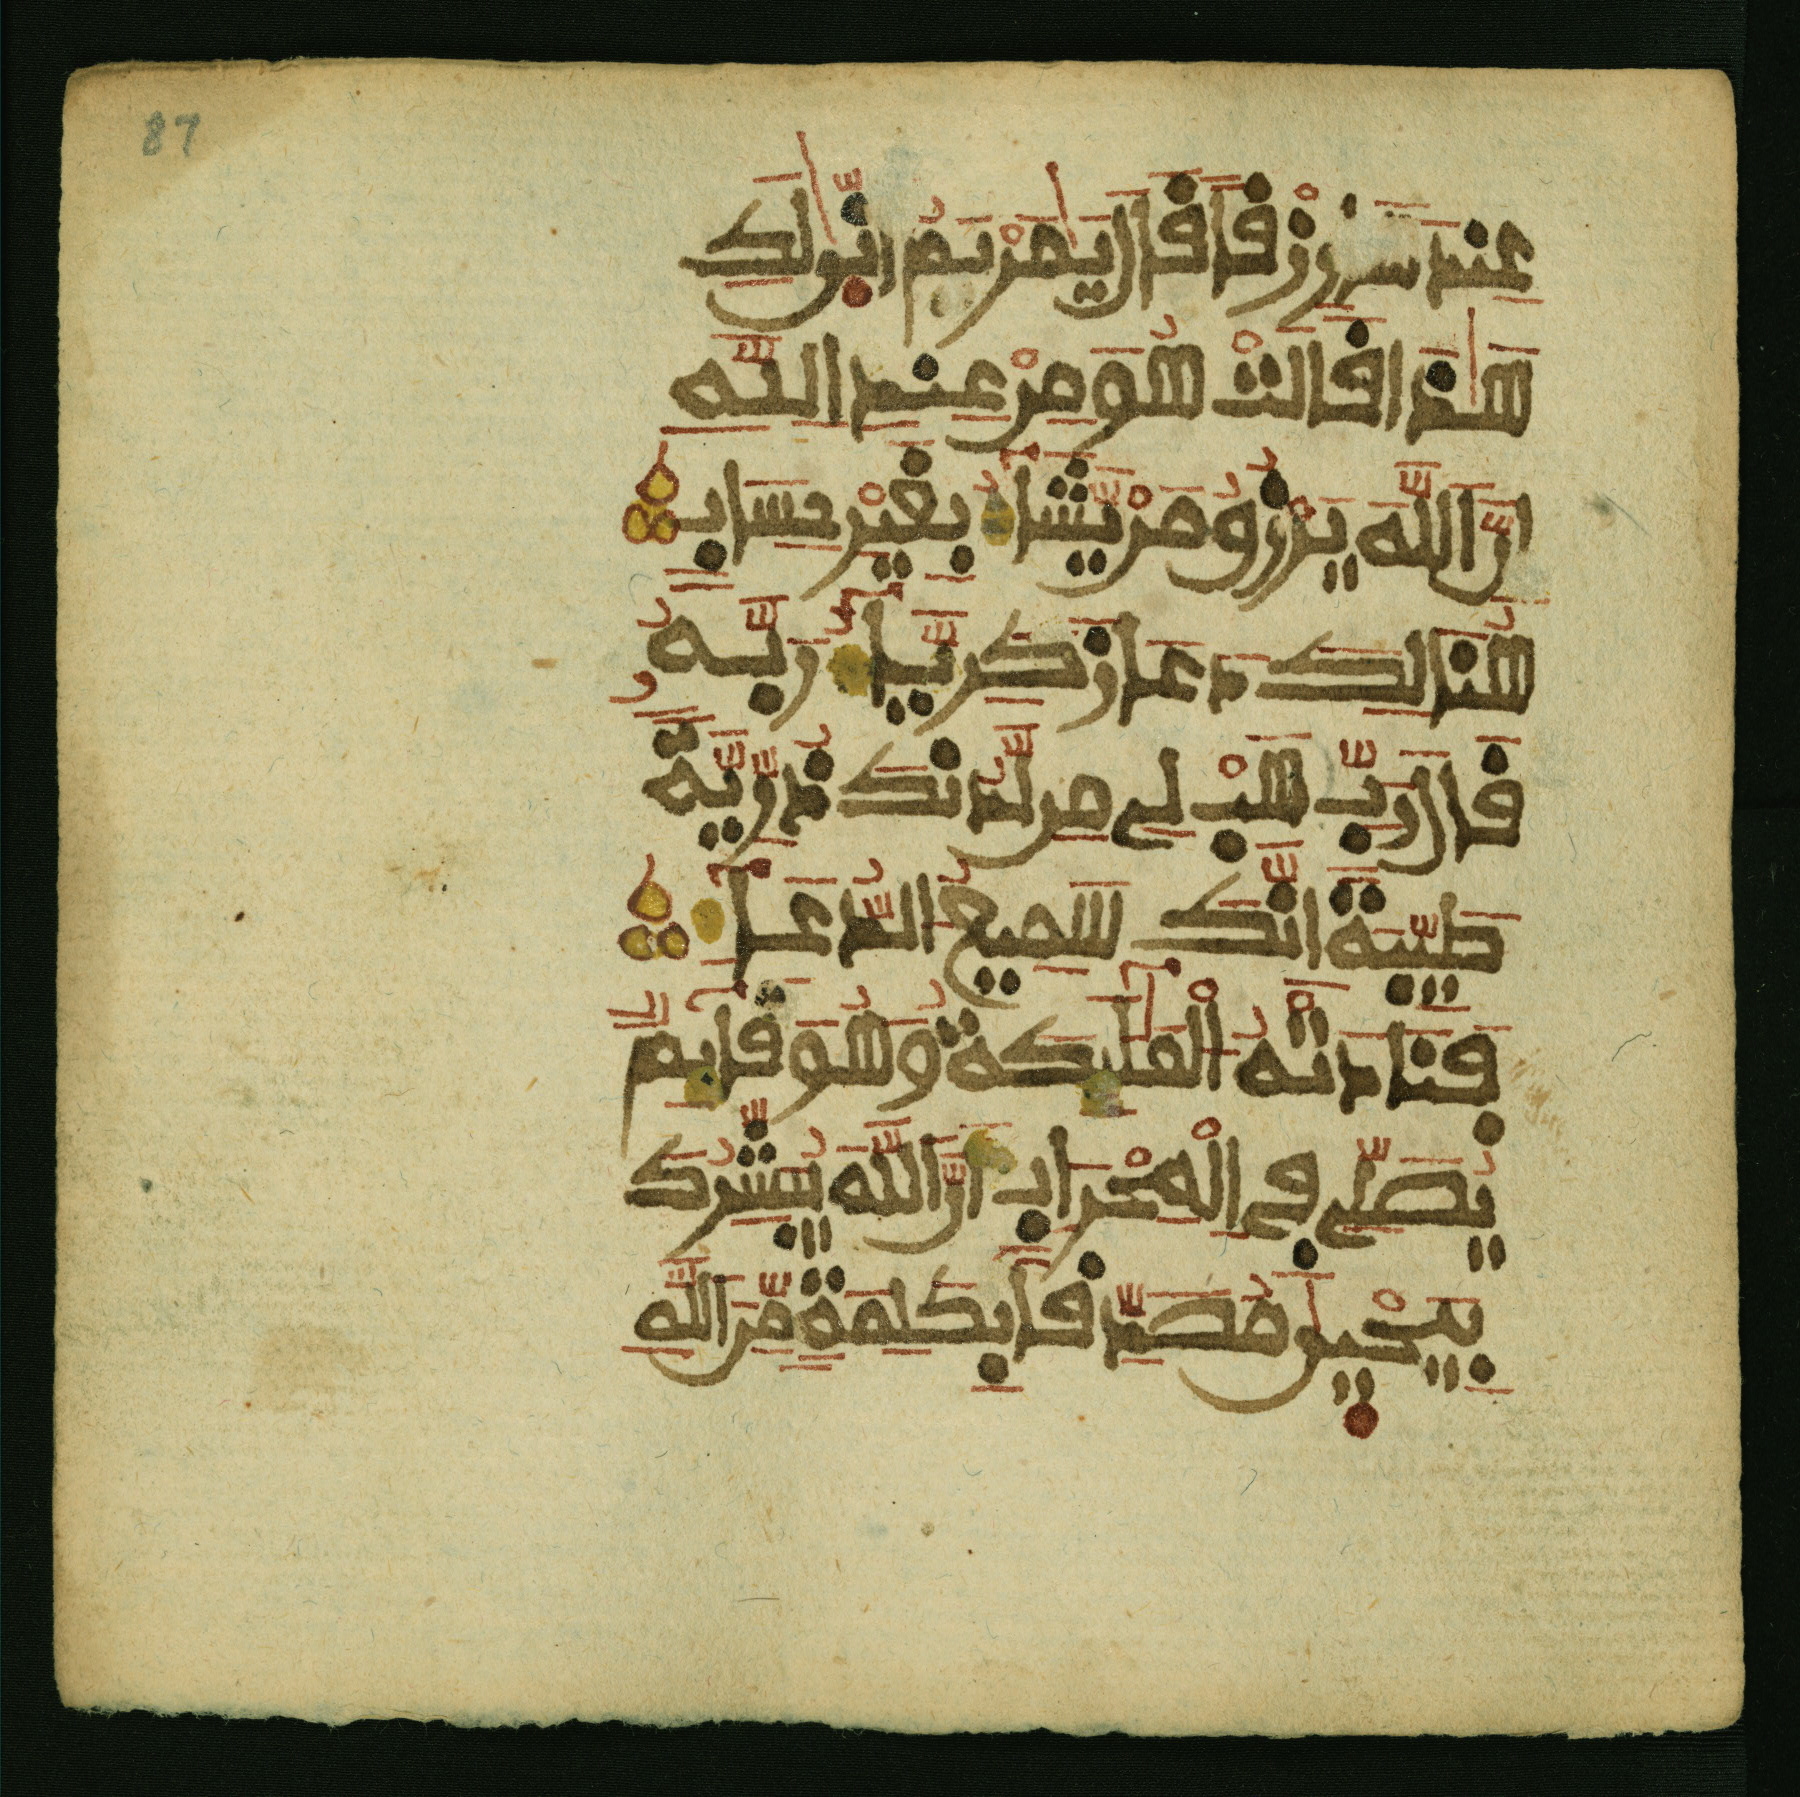 87
عِندَهَا رِزْقاً قَالَ يَمَرْيَمُ أَنَّى لَكِ
هَذَا قَالَتْ هُوَ مِنْ عِندِ اللَّهِ
إِنَّ اللَّهَ يَرْزُقُ مَنْ يَّشَآءُ بِغَيْرِ حِسَابٍ
هُنَالِكَ دَعَا زَكَرِيَّآءُ رَبَّهُ
قَالَ رَبِّ هَبْ لِي مِن لَّدُنكَ ذُرِّيَّةً
طَيِّبَةً إِنَّكَ سَمِيعُ الدُّعَآءِ
فَنَادَتْهُ الْمَلَٰئِكَةُ وَهُوَ قَآئِمٌ
يُصَلِّي فِي الْمِحْرَابِ أَنَّ اللَّهَ يُبَشِّرُكَ
بِيَحْيَى مُصَدِّقاً بِكَلِمَةٍ مِّنَ اللَّهِ